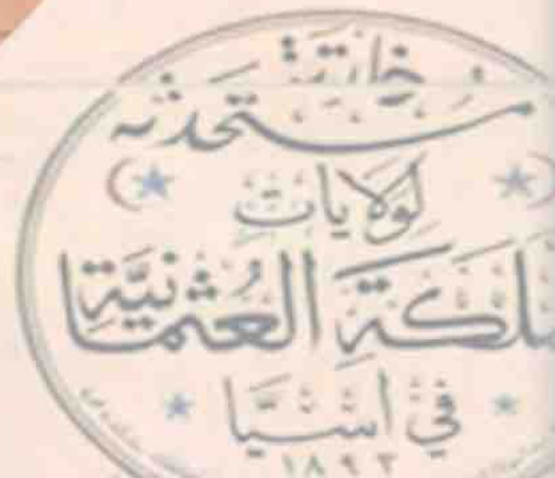 خارتة
مستحدثه
لولايات
لمكة العُثمانيَّةِ
في اسيَّا
١٨٩٣